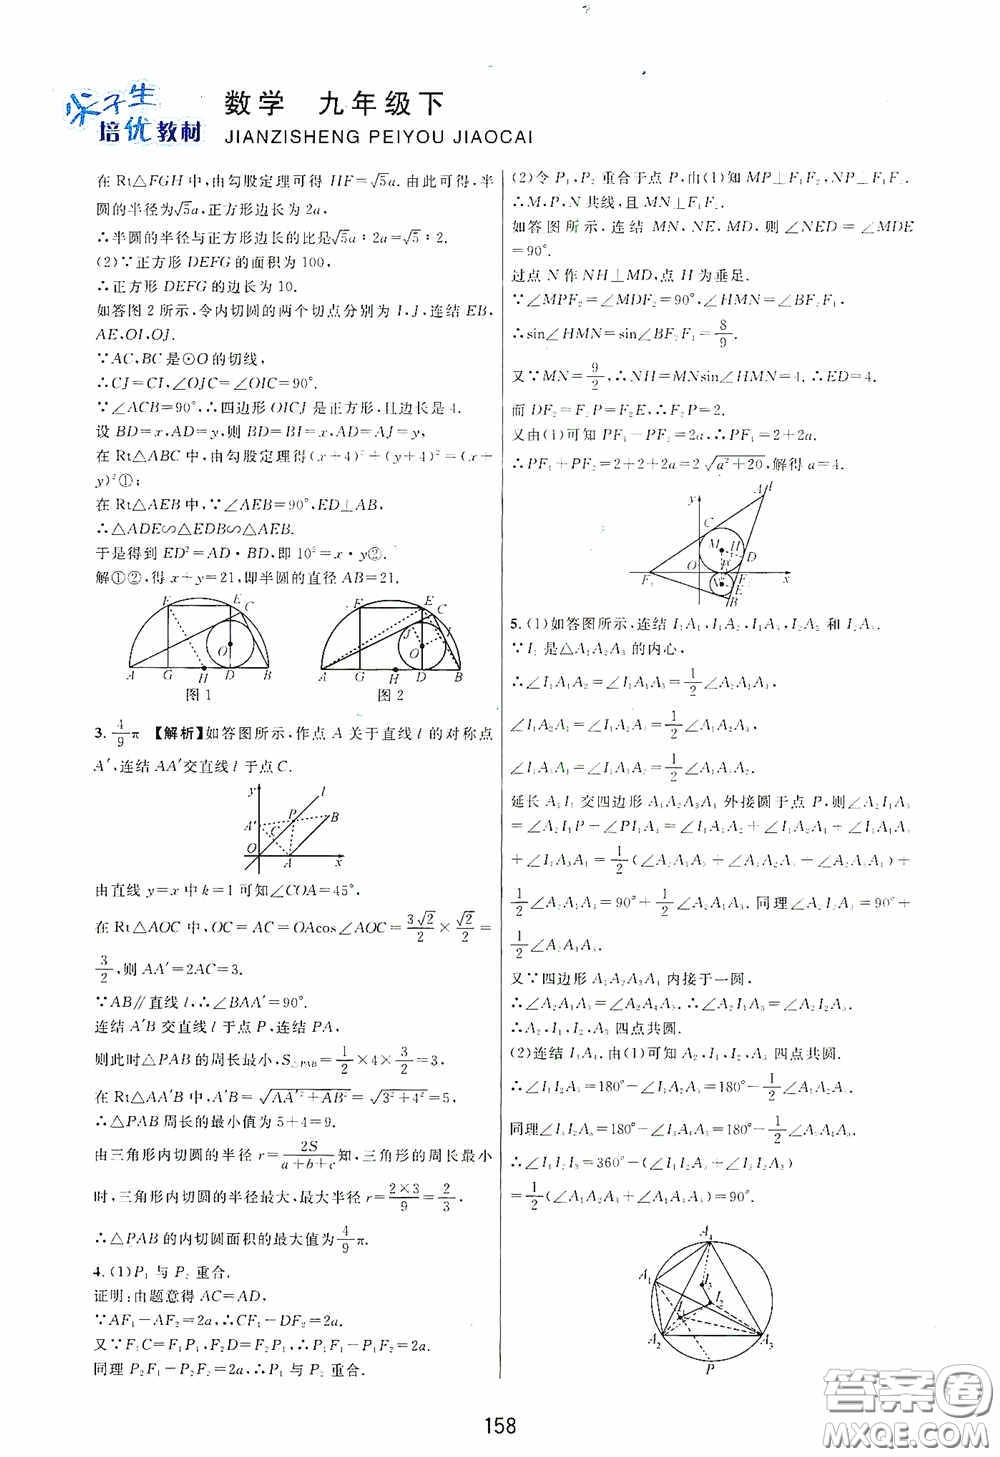 尖子生
培优教材
数学 九年级下
JIANZISHENG PEIYOU JIAOCAI
在 Rt△FGH 中,由勾股定理可得 HF=√5a. 由此可得,半
圆的半径为√5a,正方形边长为 2a,
∴半圆的半径与正方形边长的比是√5a∶2a=√5∶2.
(2)∵正方形 DEFG 的面积为 100,
∴正方形 DEFG 的边长为 10.
如答图 2 所示,令内切圆的两个切点分别为 I,J,连结 EB,
AE,OI,OJ.
∵AC,BC 是⊙O 的切线,
∴CJ=CI,∠OJC=∠OIC=90°.
∵∠ACB=90°,∴四边形 OICJ 是正方形,且边长是 4.
设 BD=x,AD=y,则 BD=BI=x,AD=AJ=y,
在 Rt△ABC 中,由勾股定理得(x+4)²+(y+4)²=(x+
y)²①;
在 Rt△AEB 中,∵∠AEB=90°,ED⊥AB,
∴△ADE∽△EDB∽△AEB.
于是得到 ED²=AD·BD,即 10²=x·y②.
解①②,得 x+y=21,即半圆的直径 AB=21.
F E C O A G H D B
图 1
F E C J I O A G H D B
图 2
3. 4/9π 【解析】如答图所示,作点 A 关于直线 l 的对称点
A′,连结 AA′交直线 l 于点 C.
y l P B A′ C O A x
由直线 y=x 中 k=1 可知∠COA=45°,
在 Rt△AOC 中,OC=AC=OAcos∠AOC=3√2/2×√2/2=
3/2,则 AA′=2AC=3.
∵AB∥直线 l,∴∠BAA′=90°.
连结 A′B 交直线 l 于点 P,连结 PA,
则此时△PAB 的周长最小,S△PAB=1/2×4×3/2=3,
在 Rt△AA′B 中,A′B=√(AA′²+AB²)=√(3²+4²)=5,
∴△PAB 周长的最小值为 5+4=9.
由三角形内切圆的半径 r=2S/(a+b+c)知,三角形的周长最小
时,三角形内切圆的半径最大,最大半径 r=(2×3)/9=2/3,
∴△PAB 的内切圆面积的最大值为4/9π.
4. (1)P₁ 与 P₂ 重合.
证明:由题意得 AC=AD,
∵AF₁-AF₂=2a,∴CF₁-DF₂=2a.
又∵F₁C=F₁P₁,F₂D=F₂P₁,∴P₁F₁-P₁F₂=2a.
同理 P₂F₁-P₂F₂=2a,∴P₁ 与 P₂ 重合.
(2)令 P₁,P₂ 重合于点 P,由(1)知 MP⊥F₁F₂,NP⊥F₁F₂.
∴M,P,N 共线,且 MN⊥F₁F₂.
如答图所示,连结 MN,NE,MD,则∠NED=∠MDE
=90°.
过点 N 作 NH⊥MD,点 H 为垂足.
∵∠MPF₂=∠MDF₂=90°,∠HMN=∠BF₂F₁,
∴sin∠HMN=sin∠BF₂F₁=8/9.
又∵MN=9/2,∴NH=MNsin∠HMN=4.∴ED=4.
而 DF₂=F₂P=F₂E,∴F₂P=2.
又由(1)可知 PF₁-PF₂=2a,∴PF₁=2+2a.
∴PF₁+PF₂=2+2+2a=2√(a²+20),解得 a=4.
y A l C M H D O P F₁ F₂ x N E B
5. (1)如答图所示,连结 I₁A₁,I₁A₂,I₁A₃,I₂A₂ 和 I₂A₃.
∵I₁ 是△A₁A₂A₃ 的内心,
∴∠I₁A₁A₂=∠I₁A₁A₃=1/2∠A₂A₁A₃,
∠I₁A₂A₁=∠I₁A₂A₃=1/2∠A₁A₂A₃,
∠I₁A₃A₁=∠I₁A₃A₂=1/2∠A₁A₃A₂.
延长 A₁I₁ 交四边形 A₁A₂A₃A₄ 外接圆于点 P,则∠A₂I₁A₃
=∠A₂I₁P+∠PI₁A₃=∠I₁A₁A₂+∠I₁A₂A₁+∠I₁A₁A₃
+∠I₁A₃A₁=1/2(∠A₂A₁A₃+∠A₁A₂A₃+∠A₁A₃A₂)+
1/2∠A₂A₁A₃=90°+1/2∠A₂A₁A₃. 同理∠A₂I₂A₃=90°+
1/2∠A₂A₄A₃.
又∵四边形 A₁A₂A₃A₄ 内接于一圆,
∴∠A₂A₁A₃=∠A₂A₄A₃,∴∠A₂I₁A₃=∠A₂I₂A₃,
∴A₂,I₁,I₂,A₃ 四点共圆.
(2)连结 I₃A₄,由(1)可知 A₂,I₁,I₂,A₃ 四点共圆.
同理
A₄ A₁ I₃ I₂ A₂ A₃ P
158
答案圈
MXQE.COM